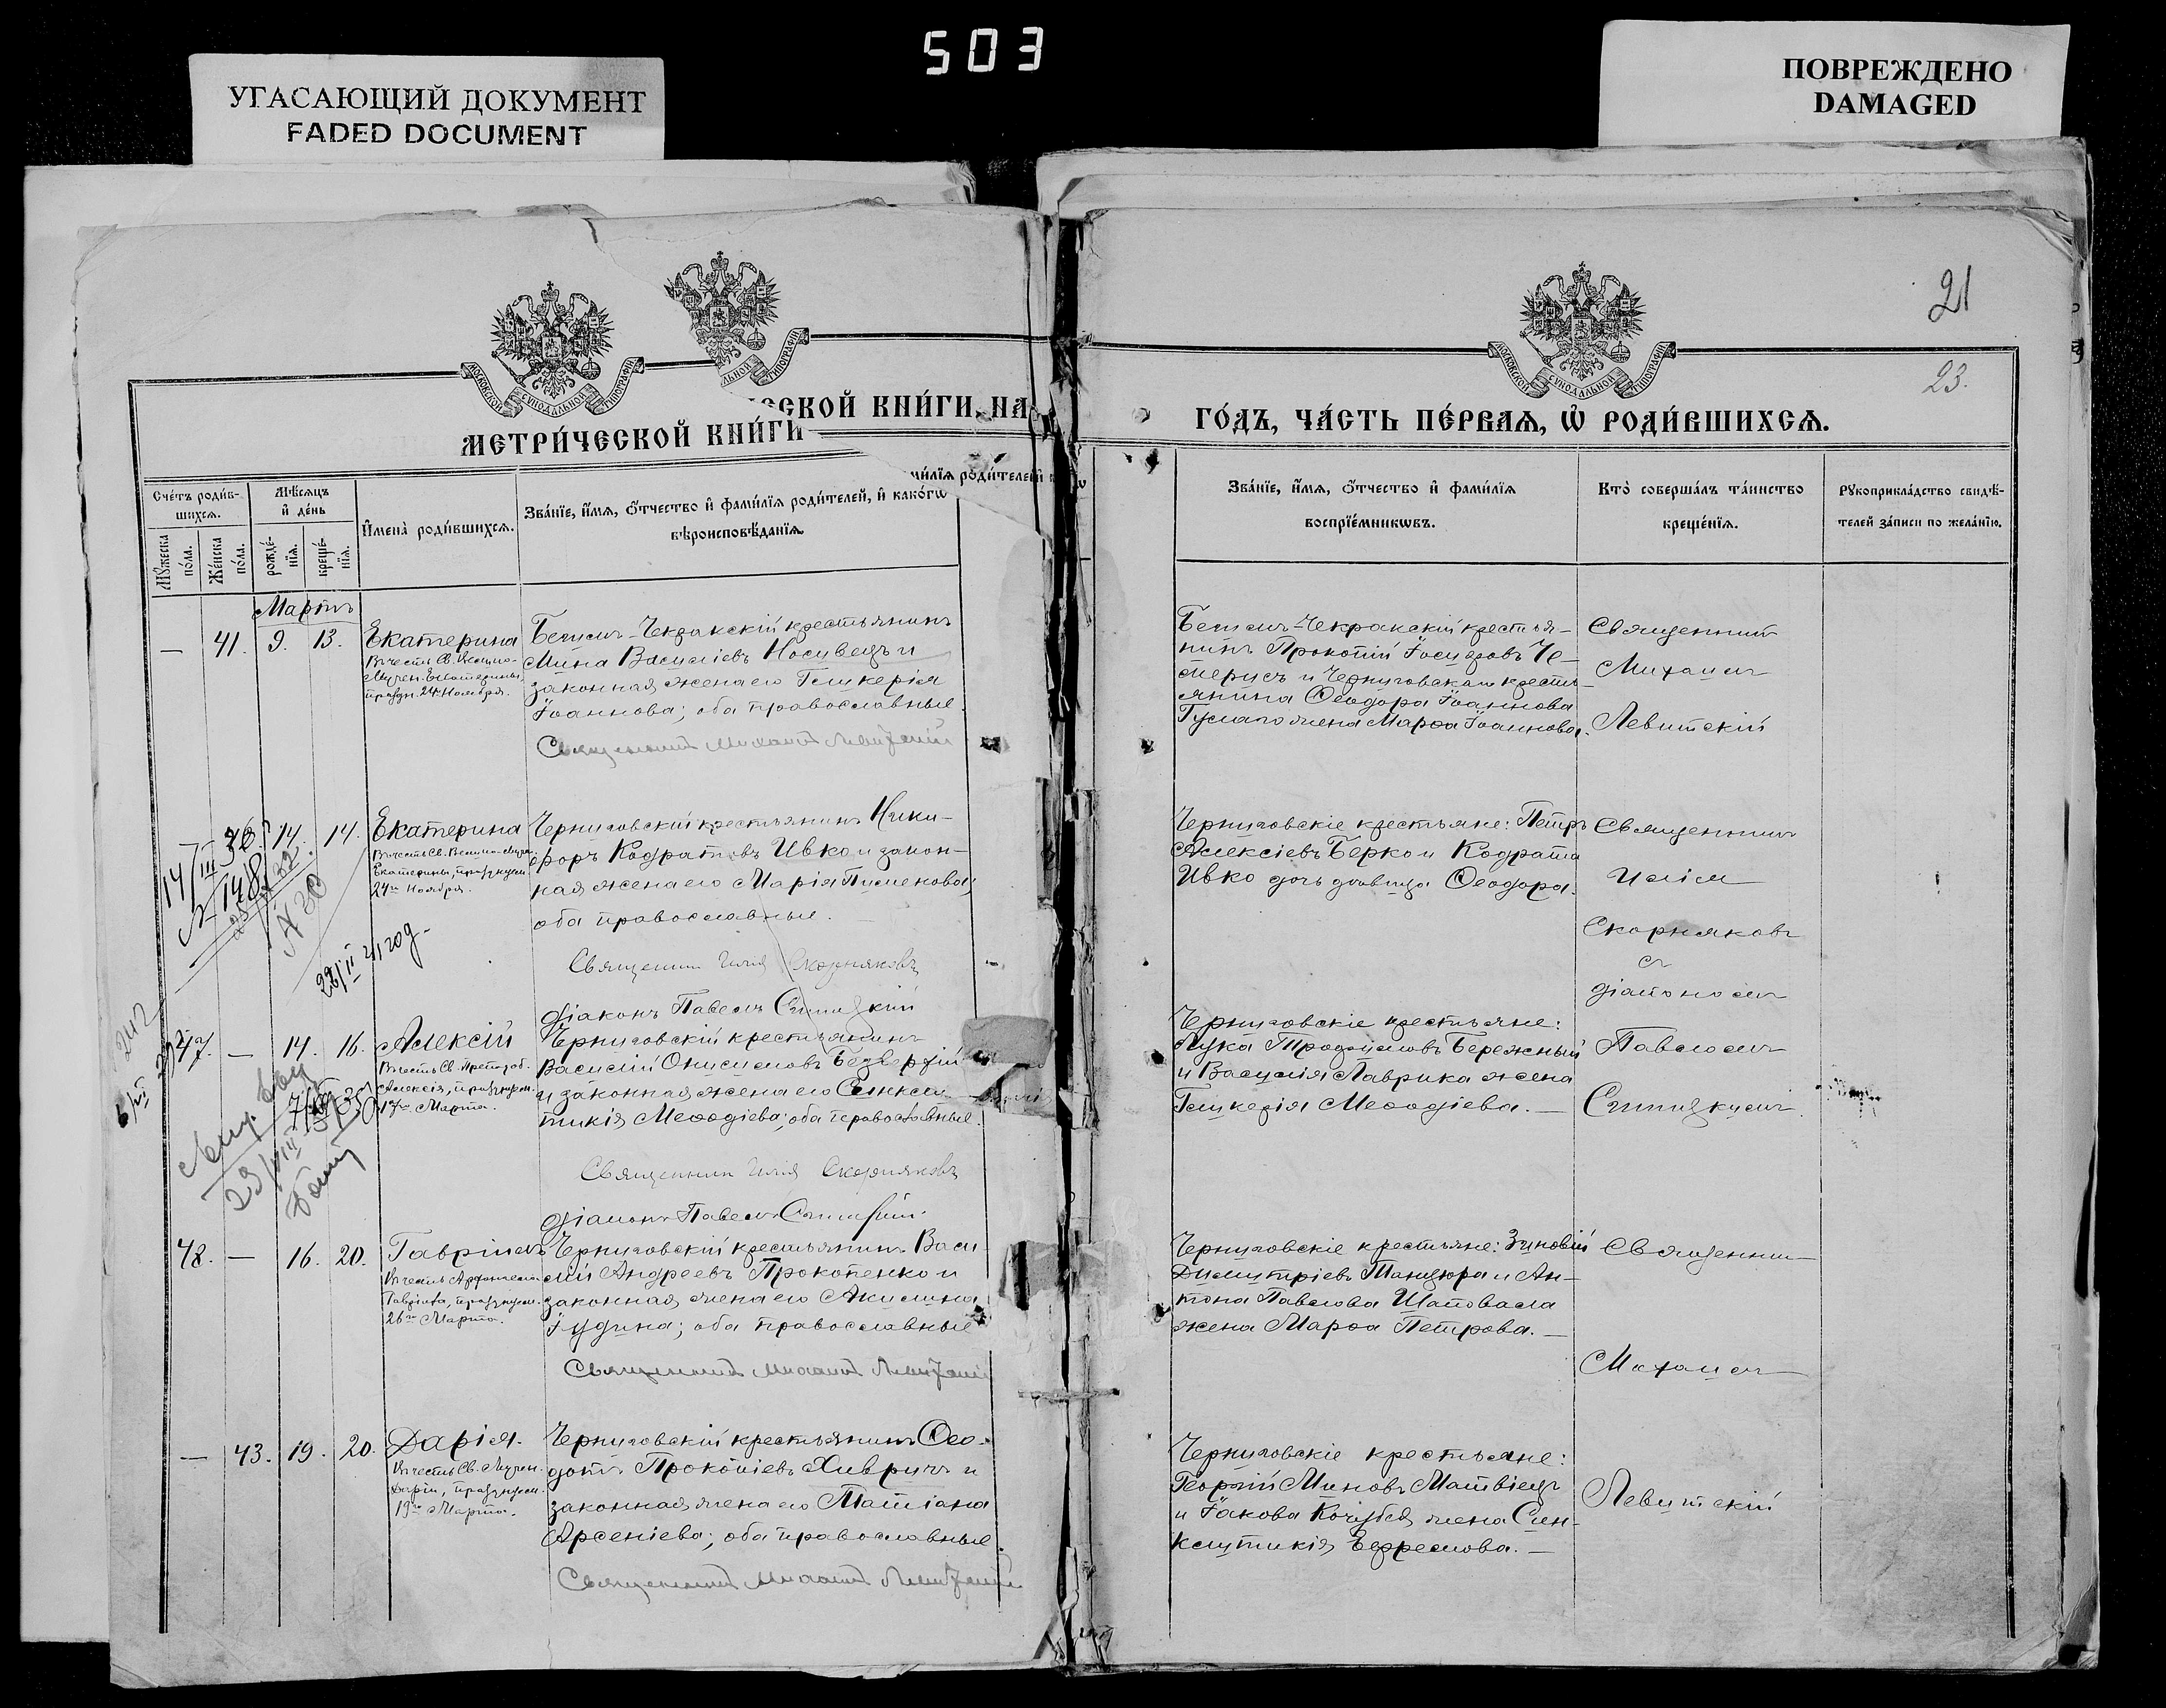 503
УГАСАЮЩИЙ ДОКУМЕНТ
FADED DOCUMENT
ПОВРЕЖДЕНО
DAMAGED
21
23.
МОСКОВСКОЙ СѴНОДАЛЬНОЙ ТИПОГРАФІИ
ЛЬНОЙ ТИПОГРАФІИ
МОСКОВСКОЙ СѴНОДАЛЬНОЙ ТИПОГРАФІИ
ЕСКОЙ КНИ́ГИ, НА
МЕТРИ́ЧЕСКОЙ КНИ́ГИ
ГО́ДЪ, ЧА́СТЬ ПЕ́РВАѦ, Ѡ҆ РОДИ́ВШИХСѦ.
Сче́тъ роди́в-
шихсѧ.
Мꙋ́жеска по́ла.
Же́нска по́ла.
Мѣ́сѧцъ
и҆ де́нь
рожде́-
нїѧ.
креще́-
нїѧ.
И҆мена̀ роди́вшихсѧ.
ми́лїѧ роди́телей
Зва́нїе, и҆́мѧ, ѻ҆́тчество и҆ фами́лїѧ роди́телей, и҆ како́гѡ
вѣроисповѣ́данїѧ.
Зва́нїе, и҆́мѧ, ѻ҆́тчество и҆ фами́лїѧ
воспрїе́мникѡвъ.
Кто̀ соверша́лъ та́инство
креще́нїѧ.
Рꙋкоприкла́дство свидѣ́-
телей за́писи по жела́нїю.
Мартъ
— 41. 9. 13. Екатерина
Въ честь Св. Велико-
Мучен. Екатерины,
праздн. 24 Ноября.
Бегимъ-Чекракскій крестьянинъ
Мина Василіевъ Носивецъ и
законная жена его Гликерія
Іоаннова; оба православные.
Священникъ Михаилъ Левитскій
Бегимъ-Чекракскій крестья-
нинъ Прокопій
и Черниговскаго кресть-
янина Ѳеодора Іоаннова
жена Марѳа Іоаннова.
Священникъ
Михаилъ
Левитскій
14. 14. Екатерина
Въ честь Св. Велико-Муч.
Екатерины, празднуем.
24го Ноября.
Черниговскій крестьянинъ Ники-
форъ Кодратовъ Ивко и закон-
ная жена его Марія
оба православные.
Священникъ Илія Скорняковъ
Діаконъ Павелъ
Черниговскіе крестьяне: Петръ
Алексіевъ Берко и Кодрата
Ивко дочь дѣвица Ѳеодора.
Священникъ
Илія
Скорняковъ
съ
діакономъ
Павломъ
14/III
N 148
N 30
год
242
47. — 14. 16. Алексій
Въ честь Св. Преподоб.
Алексія, празднуем.
17го Марта.
Черниговскій крестьянинъ
Василій Онисимовъ
и законная жена его Синкли-
тикія Меѳодіева; оба православные.
Священникъ Илія Скорняковъ
Діаконъ Павелъ
Черниговскіе крестьяне:
Лука Трофимовъ Бережный
и Василія Лаврика жена
Гликерія Меѳодіева. —
48. — 16. 20. Гавріилъ
Въ честь Архангела
Гавріила, празднуем.
26го Марта.
Черниговскій крестьянинъ Васи-
лій Андреевъ Прокопенко и
законная жена его Акилина
Іудина; оба православные
Священникъ Михаилъ Левитскій
Черниговскіе крестьяне: Зиновій
Димитріевъ Танцюра и Ан-
тона Павлова Шаповала
жена Марѳа Петрова. —
Священникъ
Михаилъ
Левитскій
— 43. 19. 20. Дарія.
Въ честь Св. Мучен.
Даріи, празднуем.
19го Марта.
Черниговскій крестьянинъ Ѳео-
дотъ Прокопіевъ Хивричъ и
законная жена его Татіана
Арсеніева; оба православные.
Священникъ Михаилъ Левитскій
Черниговскіе крестьяне:
Георгій Миновъ Матвіецъ
и Іакова Кочубея жена Син-
клитикія Ефремова. —